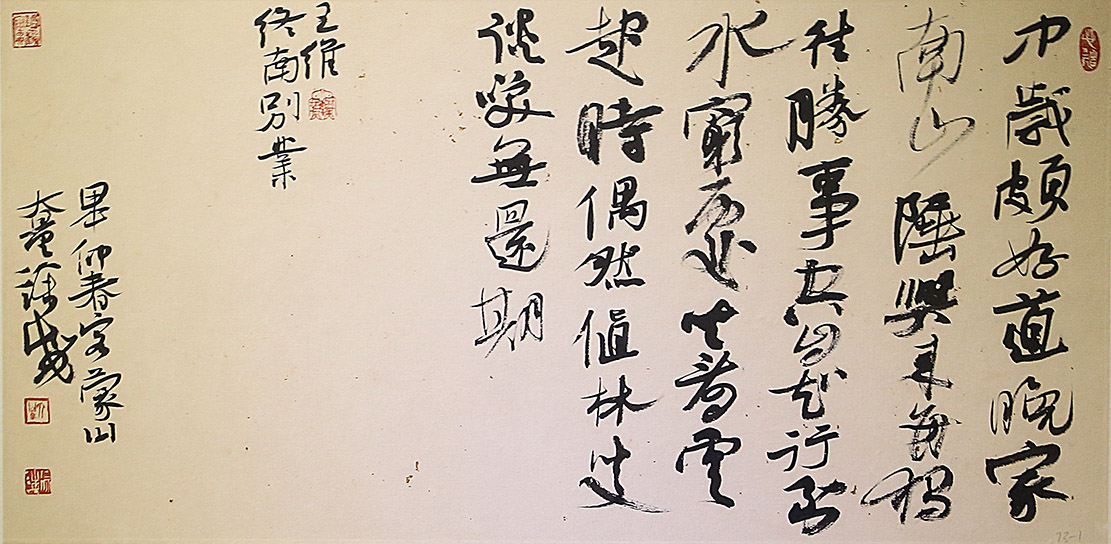 中歲頗好道晚家
南山陲興來每獨
往勝事空自知行到
水窮處坐看雲
起時偶然值林叟
談咲無還期
王維
終南別業
仲春客蒙山
73-1